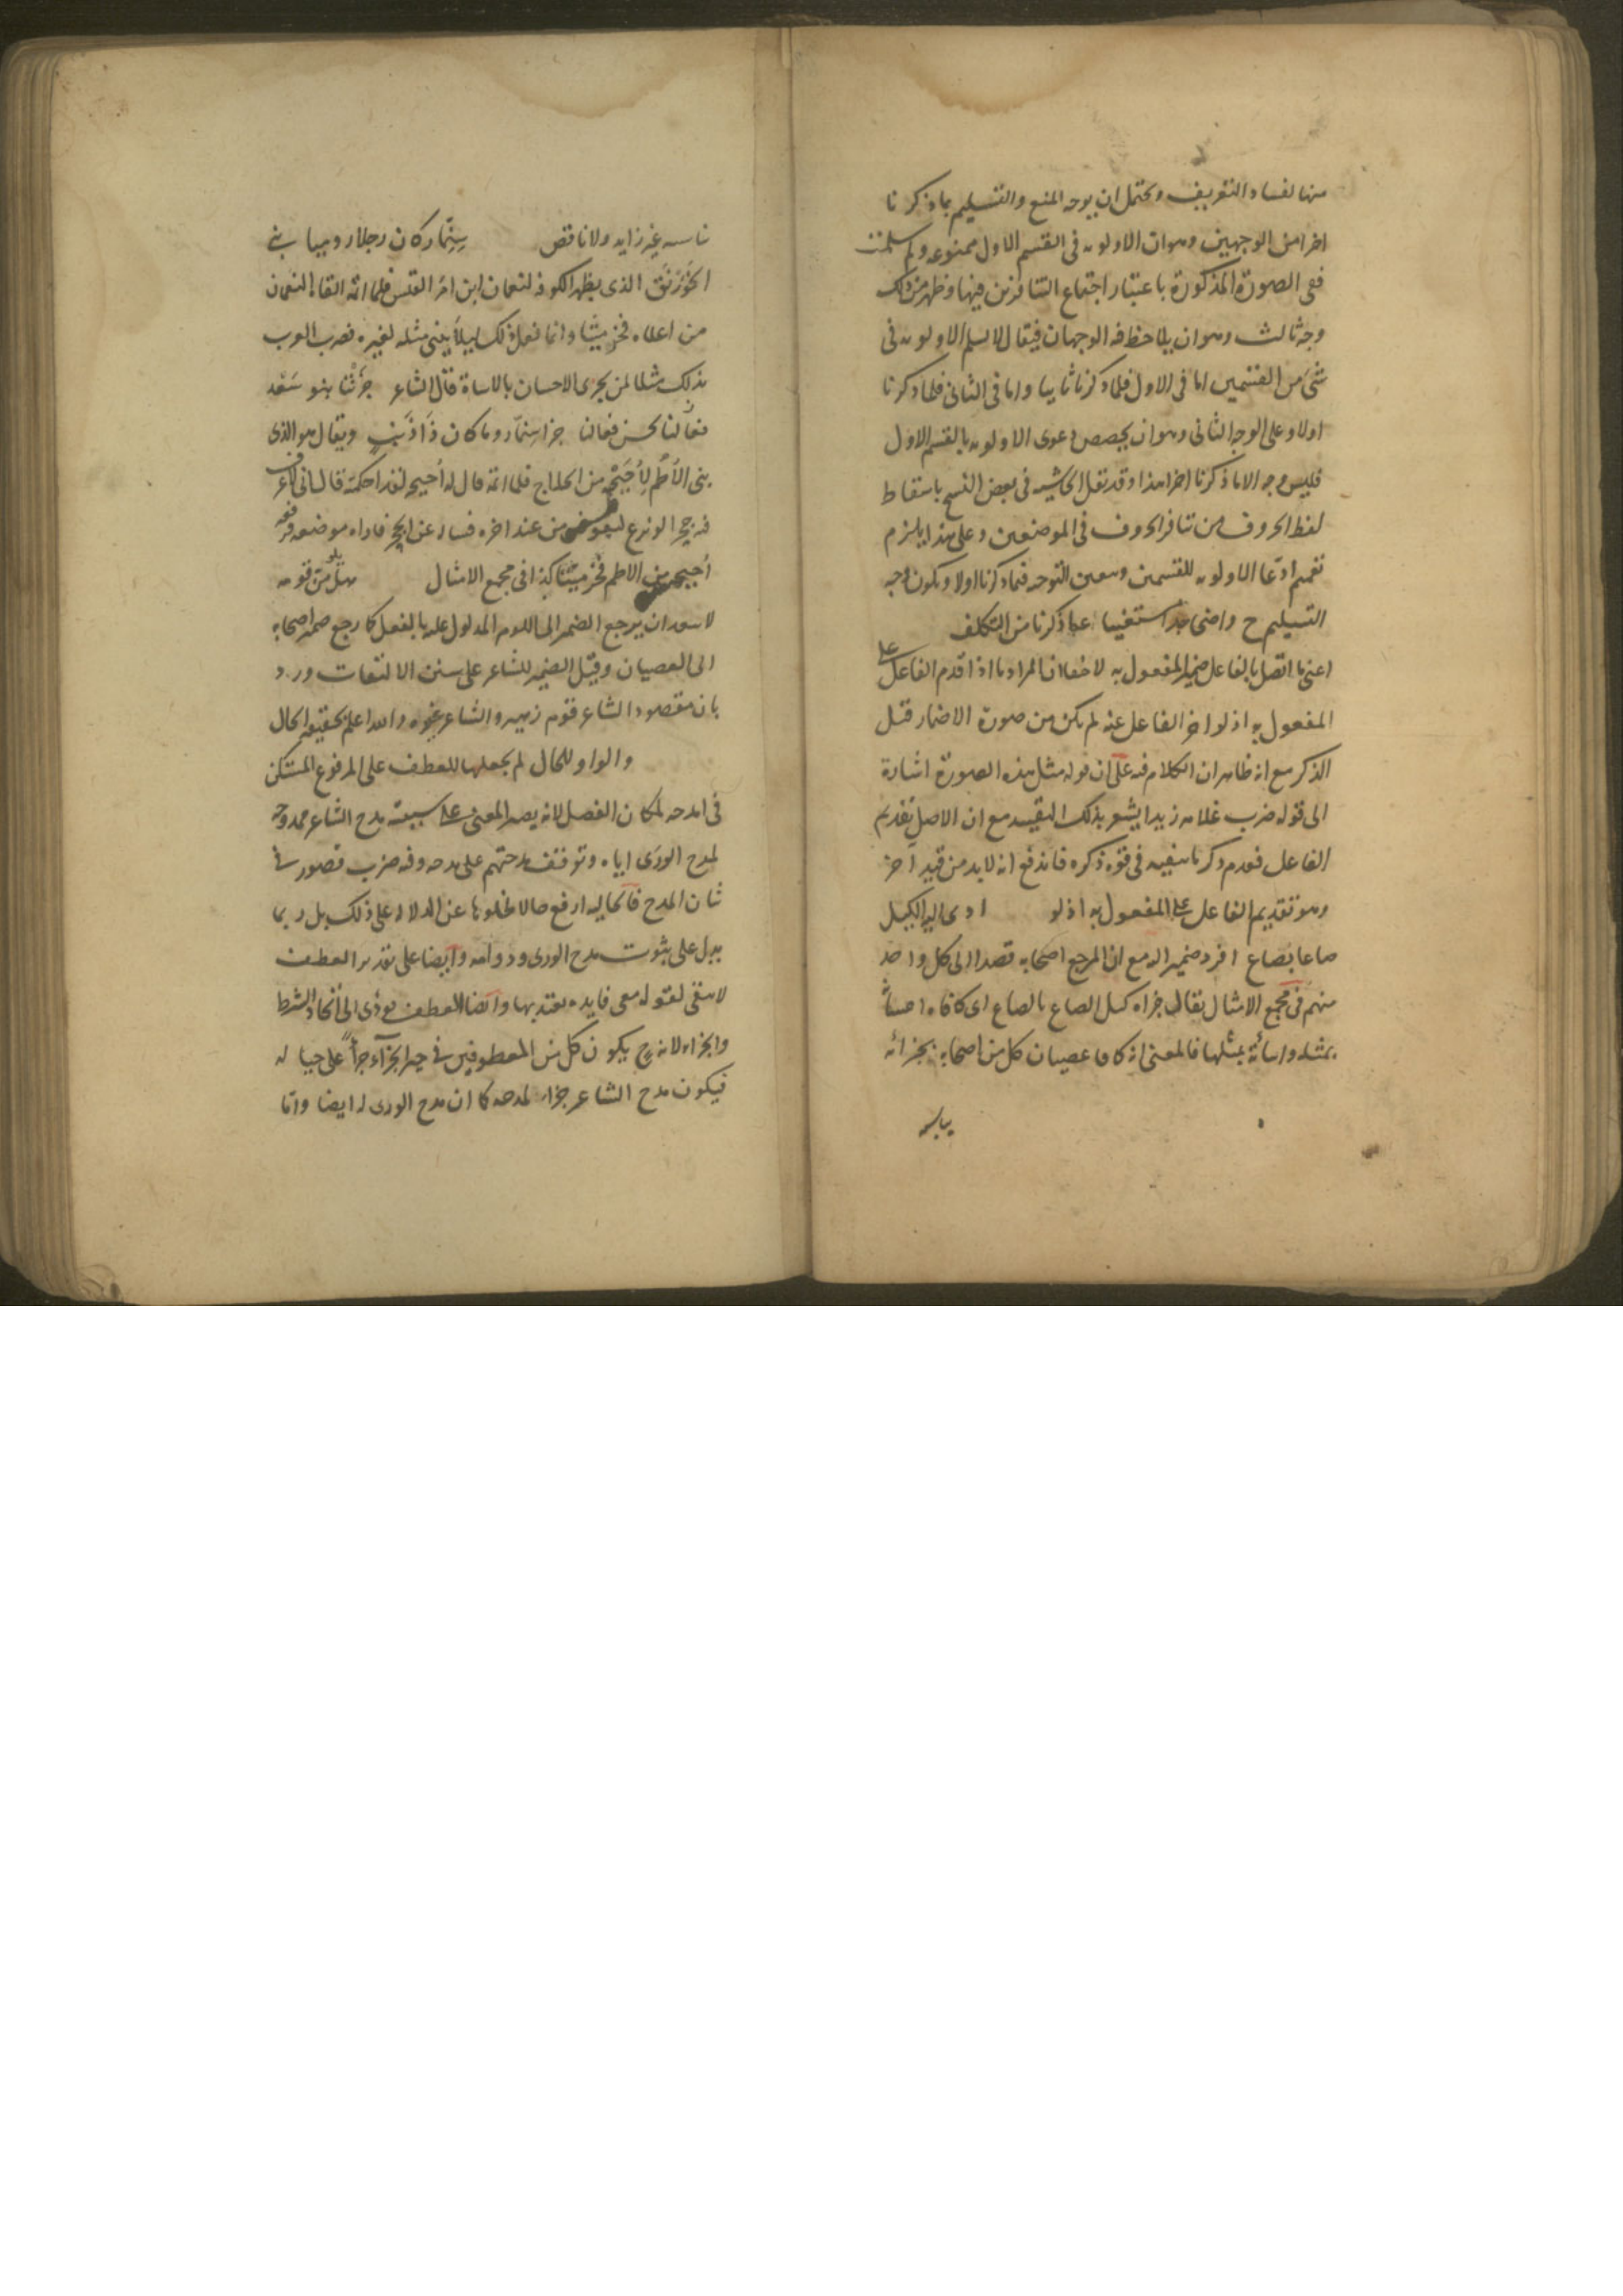 منها لفساد التعريف ويحتمل ان يوجه المنع والتسليم بما ذكرنا
اخرا من الوجهين وهو ان الاولوية فى القسم الاول ممنوعة ولو سلمت
ففى الصورة المذكورة باعتبار اجتماع التنافرين فيها وظهر من ذلك
وجه ثالث وهو ان يلاحظ فيه الوجهان فيقال لا نسلم الاولوية فى
شئ من القسمين اما فى الاول فلما ذكرنا ثانيا واما فى الثانى فلما ذكرنا
اولا وعلى الوجه الثانى وهو ان يخصص دعوى الاولوية بالقسم الاول
فليس وجه الا ما ذكرنا اخرا هذا وقد نقل الحاشية فى بعض النسخ باسقاط
لفظ الحروف من تنافر الحروف فى الموضعين وعلى هذا يلزم
تعميم ادعا الاولوية للقسمين وتعين التوجيه فيما ذكرنا اولا ويكون وجه
التسليم ح واضحا جدا مستغنيا عما ذكرنا من التكلف
اعنى ما اتصل بالفاعل ضمير المفعول به لا خفاء ان المراد ما اذا قدم الفاعل على
المفعول به اذ لو اخر الفاعل عنه لم يكن من صورة الاضمار قبل
الذكر مع انه ظاهر ان الكلام فيه على ان قوله مثل هذه الصورة اشارة
الى قوله ضرب غلامه زيدا يشعر بذلك التقييد مع ان الاصل تقديم
الفاعل فعدم ذكر ما ينفيه فى قوة ذكره فاندفع انه لا بد من قيد اخر
وهو تقديم الفاعل على المفعول به اذ لو ادى اليه الكيل
صاعا بصاع افرد ضمير اليه مع ان المرجع اصحابه قصدا الى كل واحد
منهم فى مجمع الامثال يقال جزاه كيل الصاع بالصاع اى كافاه احسانا
بمثله واساءة بمثلها فالمعنى انه كافا عصيان كل من اصحابه بجزائه
يناسبه
يناسبه غير زايد ولا ناقص سنمار كان رجلا روميا بنى
الخورنق الذى بظهر الكوفة لنعمان ابن امرء القيس فلما اتمه القاه النعمان
من اعلاه فخر ميتا وانما فعل ذلك ليلا يبنى مثله لغيره فضرب العرب
بذلك مثلا لمن يجزى الاحسان بالاساة قال الشاعر جزتنا بنو سعد
بحسن فعالنا جزا سنمار وما كان ذا ذنب ويقال هو الذى
بنى الاطم لأحيحة من الحلاج فلما اتمه قال له احيحة لقد احكمته قال انى لاعرف
فيه حجرا لو نزع لتقوض من عند اخره فساله عن الحجر فاراه موضعه فدفعه
أحيحة من الاطم فخر ميتا كذا فى مجمع الامثال هل يلومن قومه
لا يبعد ان يرجع الضمير الى اللوم المدلول عليه بالفعل كما رجع ضمير اصحابه
الى العصيان وقيل الضمير للشاعر على سنن الالتفات ورد
بان مقصود الشاعر قوم زهير والشاعر غيره والله اعلم بحقيقة الحال
والواو للحال لم يجعلها للعطف على المرفوع المستكن
فى امدحه لمكان الفصل لانه يصير المعنى على سببية مدح الشاعر ممدوحه
لمدح الورى اياه وتوقف مدحتهم على مدحه وفيه ضرب قصور فى
شان المدح فالحالية ارفع حالا لخلوها عن الدلالة على ذلك بل ربما
يدل على ثبوت مدح الورى ودوامه وايضا على تقدير العطف
لا يبقى لقوله معى فايدة يعتد بها وايضا العطف يؤدى الى اتحاد الشرط
والجزاء لانه ح يكون كل من المعطوفين فى حيز الجزآء جزأ على حياله
فيكون مدح الشاعر جزاء لمدحه كما ان مدح الورى له ايضا واما